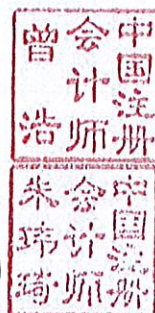 中国注册
会计师
曾浩
中国注册
会计师
朱玮琦